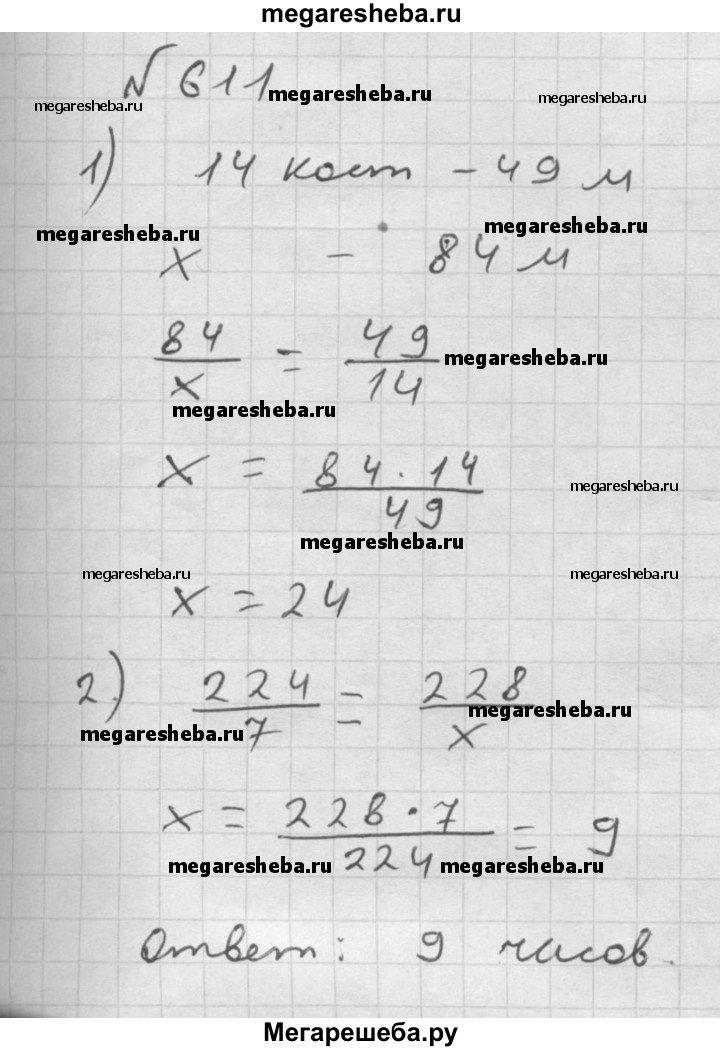 megaresheba.ru
№ 611
megaresheba.ru megaresheba.ru megaresheba.ru
1) 14 кост – 49 м
megaresheba.ru megaresheba.ru
x – 84 м
84/x = 49/14
megaresheba.ru
megaresheba.ru
x = 84·14/49
megaresheba.ru
megaresheba.ru
megaresheba.ru megaresheba.ru
x = 24
2) 224/7 = 228/x
megaresheba.ru megaresheba.ru
x = 228·7/224 = 9
megaresheba.ru megaresheba.ru
Ответ: 9 часов.
Мегарешеба.ру